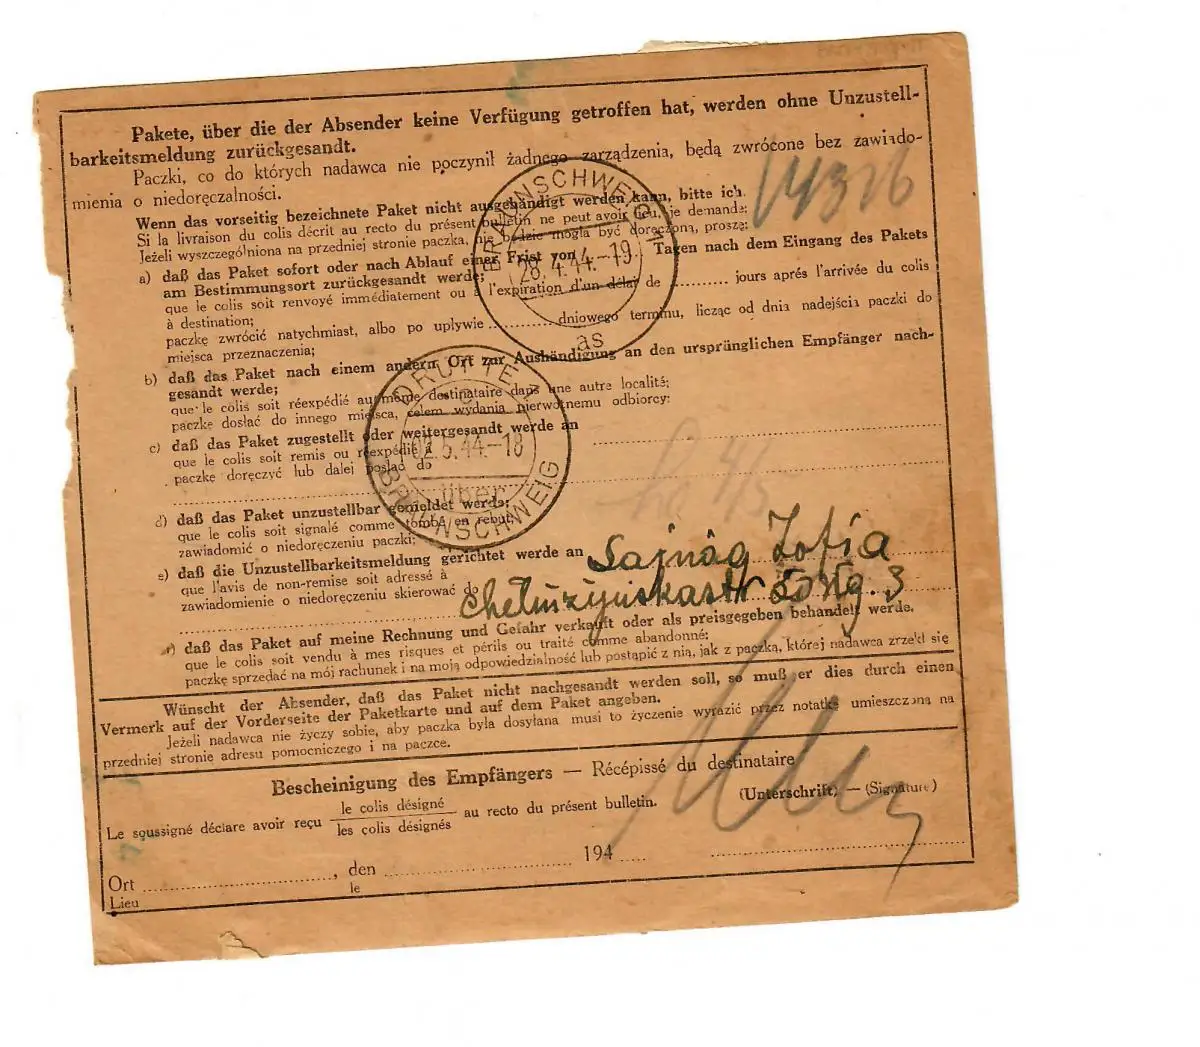 Pakete, über die der Absender keine Verfügung getroffen hat, werden ohne Unzustell-
barkeitsmeldung zurückgesandt.
Paczki, co do których nadawca nie poczynił żadnego zarządzenia, będą zwrócone bez zawiado-
mienia o niedoręczalności.
14316
Wenn das vorseitig bezeichnete Paket nicht ausgehändigt werden kann, bitte ich
Si la livraison du colis décrit au recto du présent bulletin ne peut avoir lieu, je demande:
Jeżeli wyszczególniona na przedniej stronie paczka, nie będzie mogła być doręczona, proszę:
a) daß das Paket sofort oder nach Ablauf einer Frist von Tagen nach dem Eingang des Pakets
am Bestimmungsort zurückgesandt werde;
que le colis soit renvoyé immédiatement ou à l'expiration d'un délai de .......... jours aprés l'arrivée du colis
à destination;
paczkę zwrócić natychmiast, albo po upływie ............... dniowego terminu, licząc od dnia nadejścia paczki do
miejsca przeznaczenia;
b) daß das Paket nach einem andern Ort zur Aushändigung an den ursprünglichen Empfänger nach-
gesandt werde;
que le colis soit réexpédié au même destinataire dans une autre localité;
paczkę dosłać do innego miejsca, celem wydania pierwotnemu odbiorcy:
c) daß das Paket zugestellt oder weitergesandt werde an
que le colis soit remis ou réexpédié à
paczkę doręczyć lub dalej posłać do
d) daß das Paket unzustellbar gemeldet werde;
que le colis soit signalé comme tombé en rebut;
zawiadomić o niedoręczeniu paczki;
e) daß die Unzustellbarkeitsmeldung gerichtet werde an Sajnág Zofia
que l'avis de non-remise soit adressé à
zawiadomienie o niedoręczeniu skierować do
f) daß das Paket auf meine Rechnung und Gefahr verkauft oder als preisgegeben behandelt werde.
que le colis soit vendu à mes risques et périls ou traité comme abandonné:
paczkę sprzedać na mój rachunek i na moją odpowiedzialność lub postąpić z nią, jak z paczką, której nadawca zrzekł się
Wünscht der Absender, daß das Paket nicht nachgesandt werden soll, so muß er dies durch einen
Vermerk auf der Vorderseite der Paketkarte und auf dem Paket angeben.
Jeżeli nadawca nie życzy sobie, aby paczka była dosyłana musi to życzenie wyrazić przez notatkę umieszczoną na
przedniej stronie adresu pomocniczego i na paczce.
Bescheinigung des Empfängers — Récépissé du destinataire
Le soussigné déclare avoir reçu le colis désigné
les colis désignés au recto du présent bulletin.
(Unterschrift) — (Signature)
Ort ............................, den .............................. 194.....
Lieu le
BRAUNSCHWEIG
28.4.44.-19
as
DRÜTTE
02.5.44.-18
über
BRAUNSCHWEIG